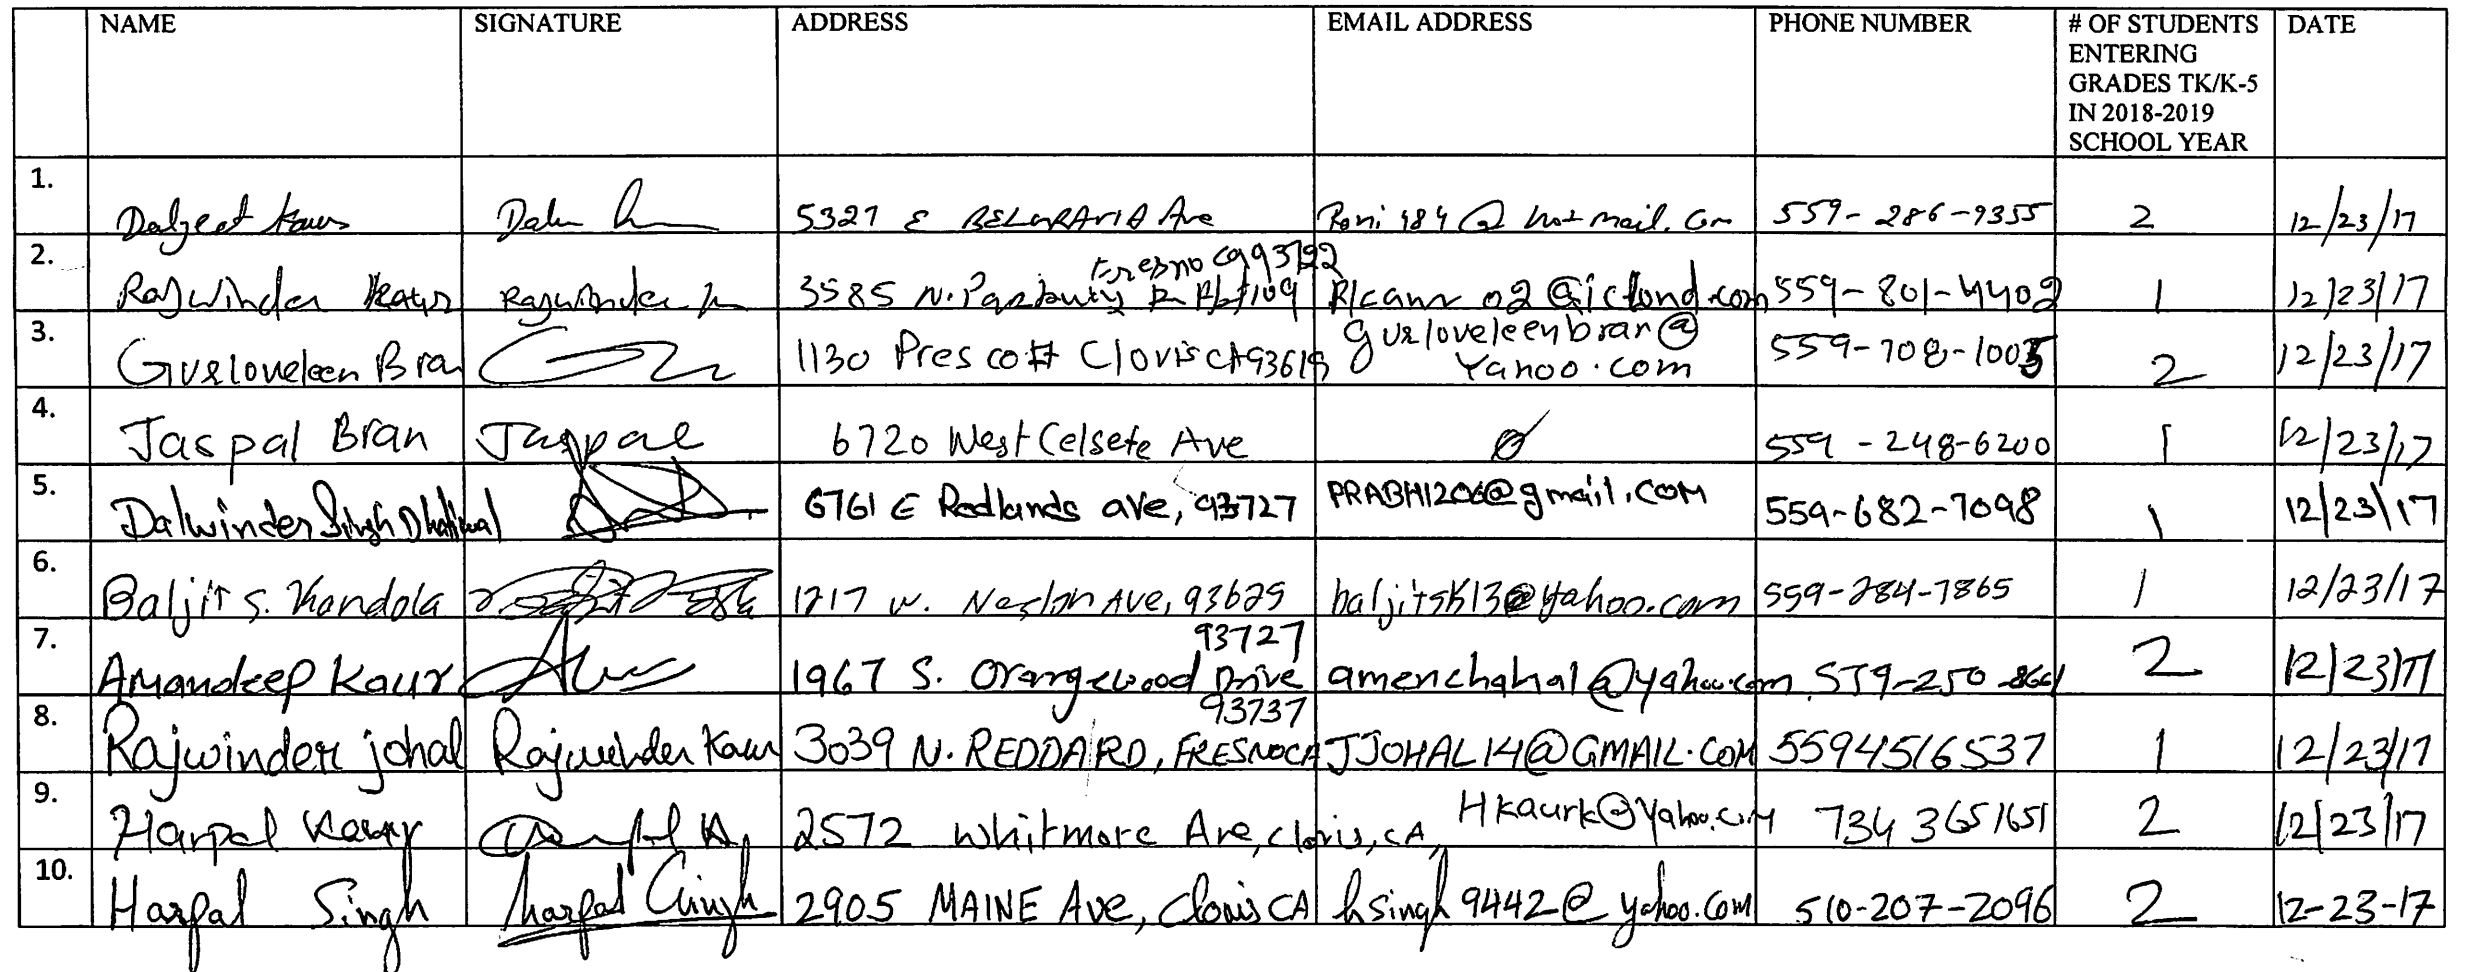 NAME SIGNATURE ADDRESS EMAIL ADDRESS PHONE NUMBER # OF STUDENTS DATE
ENTERING
GRADES TK/K-5
IN 2018-2019
SCHOOL YEAR
1. Daljeet Kaur 5327 E BELGRAVIA Ave @hotmail.com 559-286-9355 2 12/23/17
Fresno Ca 93722
2. Rajwinder Kaur Rajwinder 3585 N. Dr #109 @icloud.com 559-801-4402 1 12/23/17
3. Gurloveleen Brar 1130 Prescott Clovis CA 93619 gurloveleenbrar@ 559-708-1005 2 12/23/17
Yahoo.com
4. Jaspal Brar Jaspal 6720 West Celeste Ave 559-248-6200 1 12/23/17
5. Dalwinder Singh Dhaliwal 6761 E Redlands ave, 93727 PRABH1206@gmail.com 559-682-7098 1 12/23/17
6. Baljit S. Kandola 1717 W. Ave, baljitsk13@yahoo.com 559-284-7865 1 12/23/17
93727
7. Amandeep Kaur 1967 S. Orangewood Drive amenchahal@yahoo.com 559-250-8661 2 12/23/17
93737
8. Rajwinder johal Rajwinder Kaur 3039 N. REDDA RD, FRESNO CA JJOHAL14@GMAIL.COM 5594516537 1 12/23/17
9. Harpal Kaur 2572 Whitmore Ave, Clovis, CA, Hkaurk@Yahoo.com 734 3651651 2 12/23/17
10. Harpal Singh Harpal Singh 2905 MAINE Ave, Clovis CA hsingh9442@yahoo.com 510-207-2096 2 12-23-17